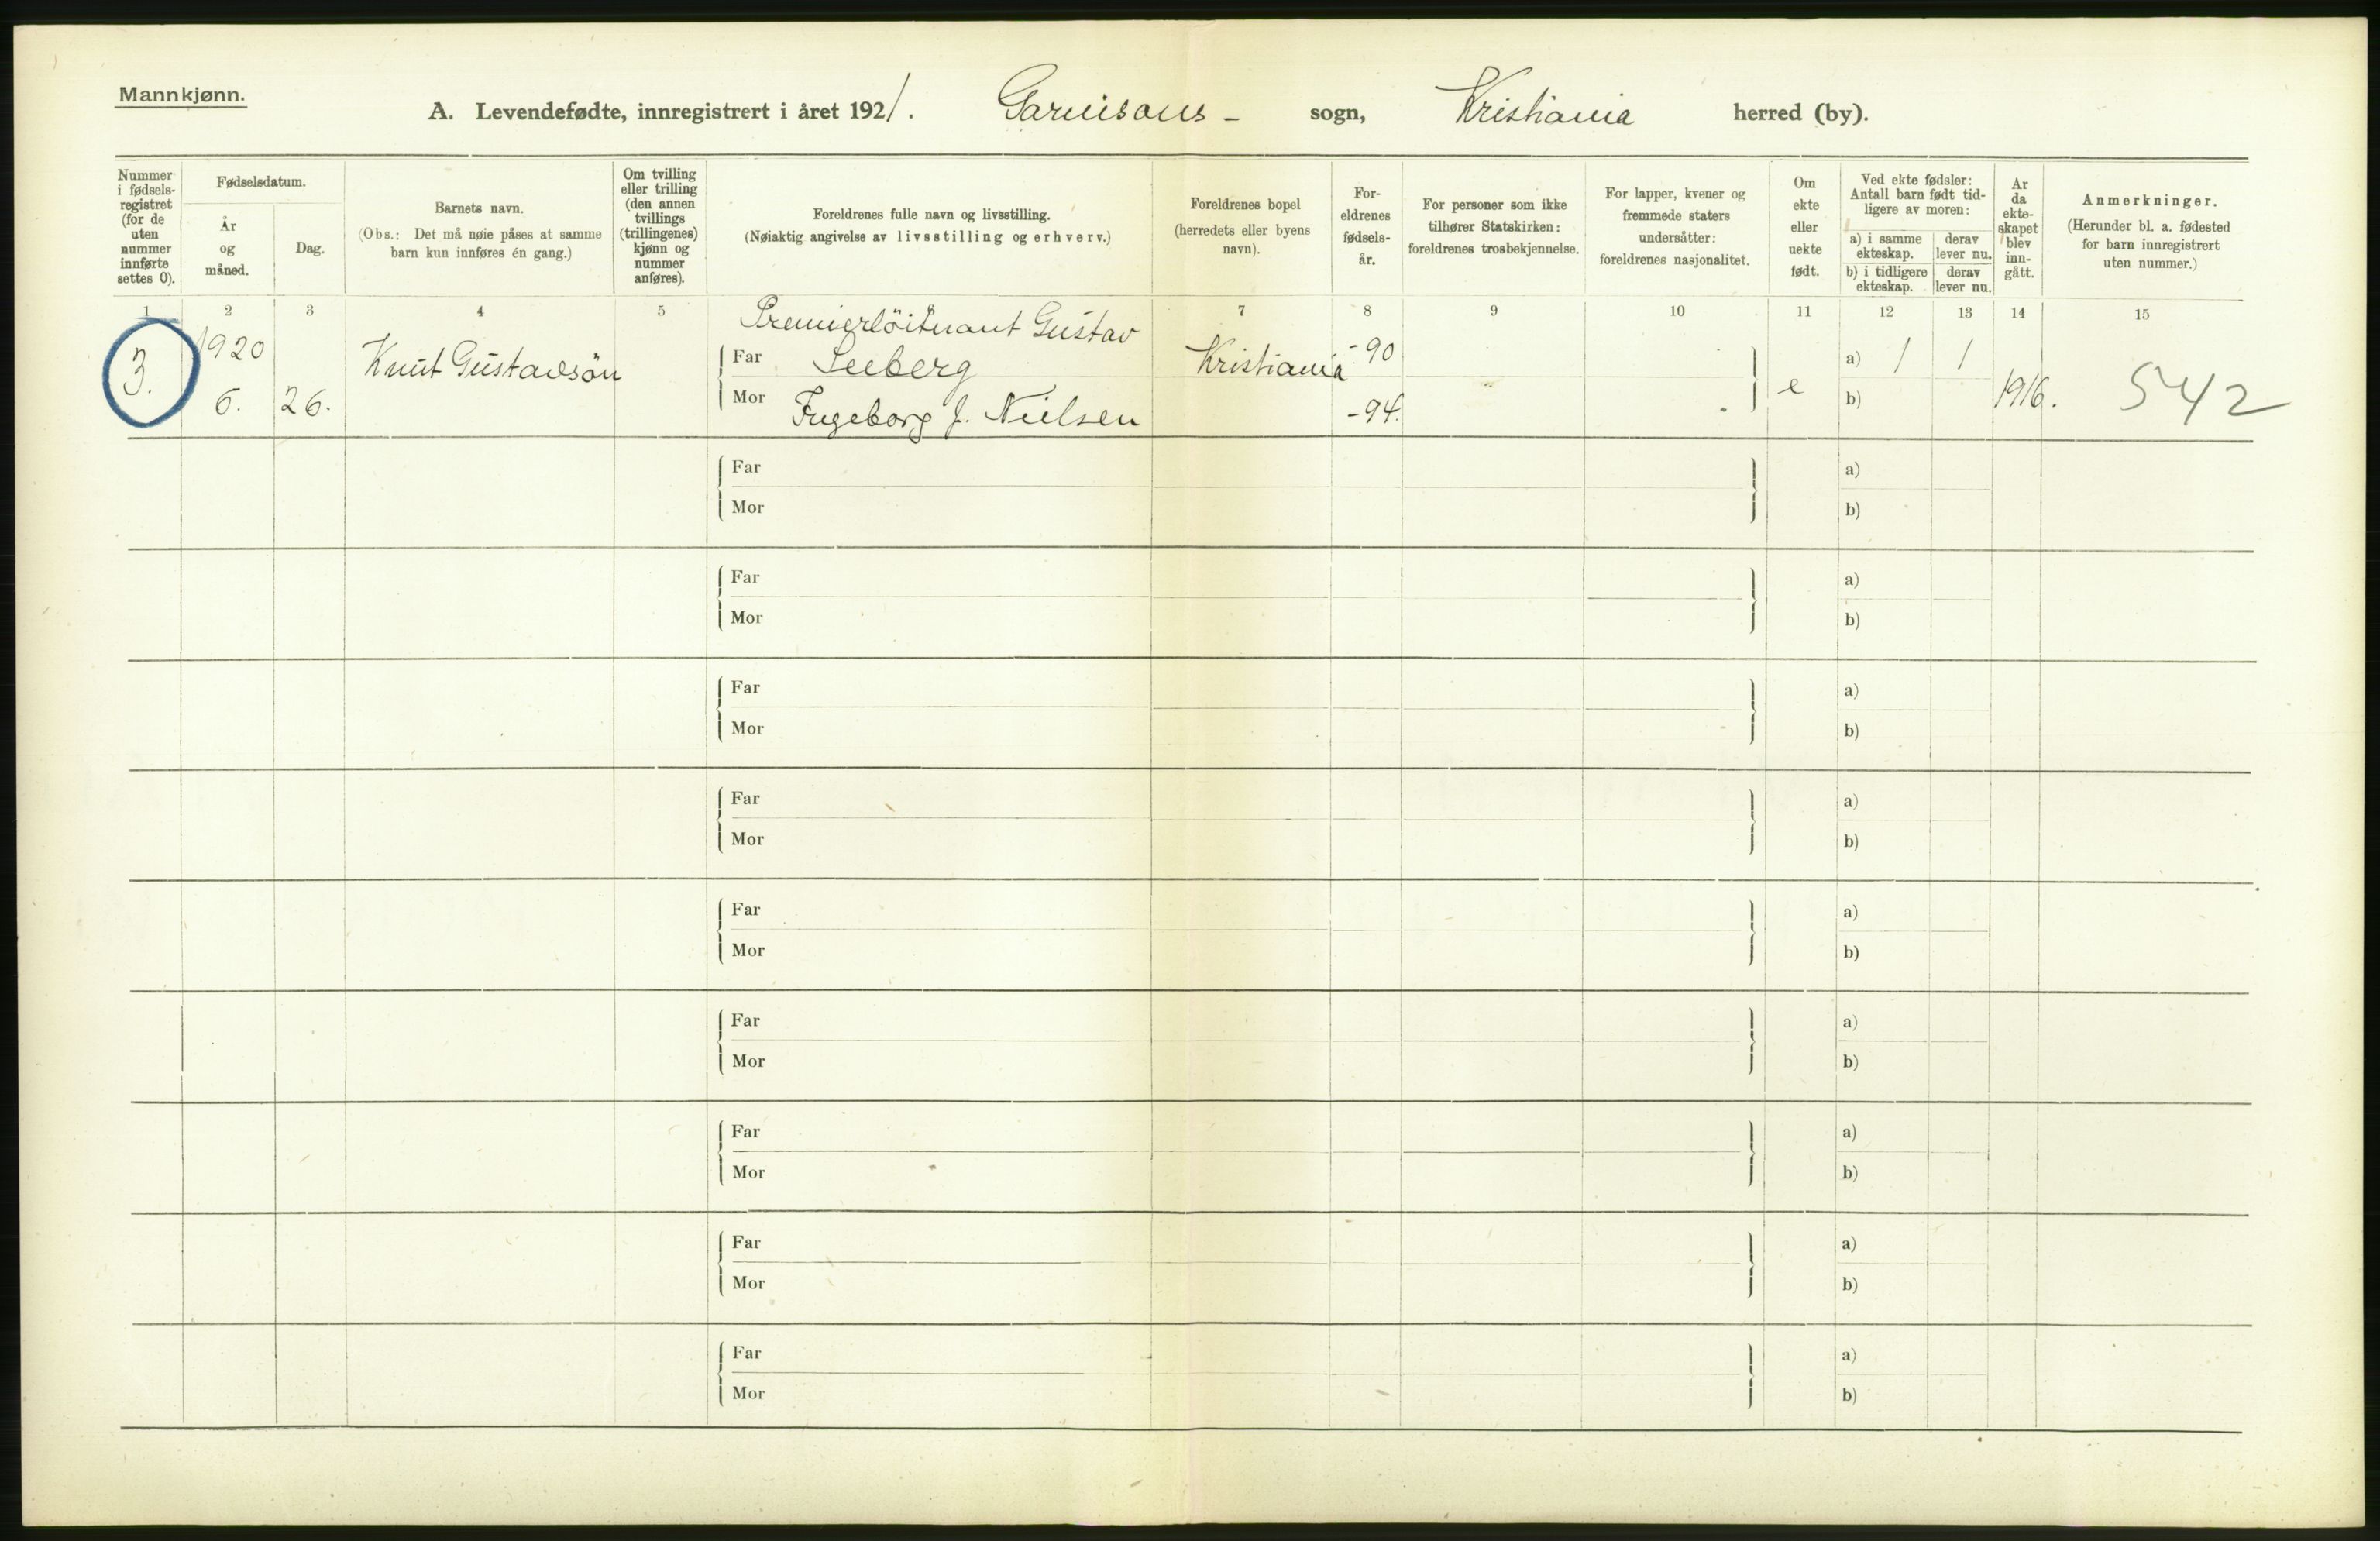 Mannkjønn.
A. Levendefødte, innregistrert i året 1921. Garnisons - sogn, Kristiania herred (by).
Nummer i fødsels-registret (for de uten nummer innførte settes 0).
Fødselsdatum.
År og måned.
Dag.
Barnets navn.
(Obs.: Det må nøie påses at samme barn kun innføres én gang.)
Om tvilling eller trilling (den annen tvillings (trillingenes) kjønn og nummer anføres).
Foreldrenes fulle navn og livsstilling.
(Nøiaktig angivelse av livsstilling og erhverv.)
Foreldrenes bopel (herredets eller byens navn).
For-eldrenes fødsels-år.
For personer som ikke tilhører Statskirken: foreldrenes trosbekjennelse.
For lapper, kvener og fremmede staters undersåtter: foreldrenes nasjonalitet.
Om ekte eller uekte født.
Ved ekte fødsler: Antall barn født tid-ligere av moren:
a) i samme ekteskap.
derav lever nu.
b) i tidligere ekteskap.
derav lever nu.
År da ekte-skapet blev inn-gått.
Anmerkninger.
(Herunder bl. a. fødested for barn innregistrert uten nummer.)
1 2 3 4 5 7 8 9 10 11 12 13 14 15
Premierlöitnant Gustav
3. 1920 Knut Gustavsön Far Seeberg Kristiania -90 a) 1 1
6. 26. Mor Ingeborg J. Nielsen -94. e b) 1916. 542
Far a)
Mor b)
Far a)
Mor b)
Far a)
Mor b)
Far a)
Mor b)
Far a)
Mor b)
Far a)
Mor b)
Far a)
Mor b)
Far a)
Mor b)
Far a)
Mor b)